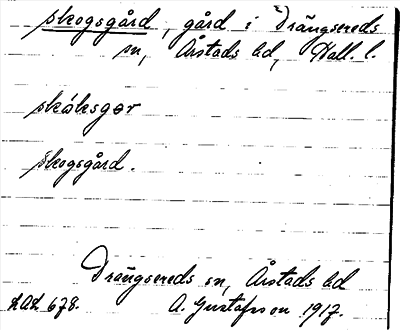 skogsgård, gård i Drängsereds
sn, Årstads hd, Hall. l.
skóksgər
Skogsgård.
Drängsereds sn, Årstads hd
LAL 678. A. Gustafsson 1917.